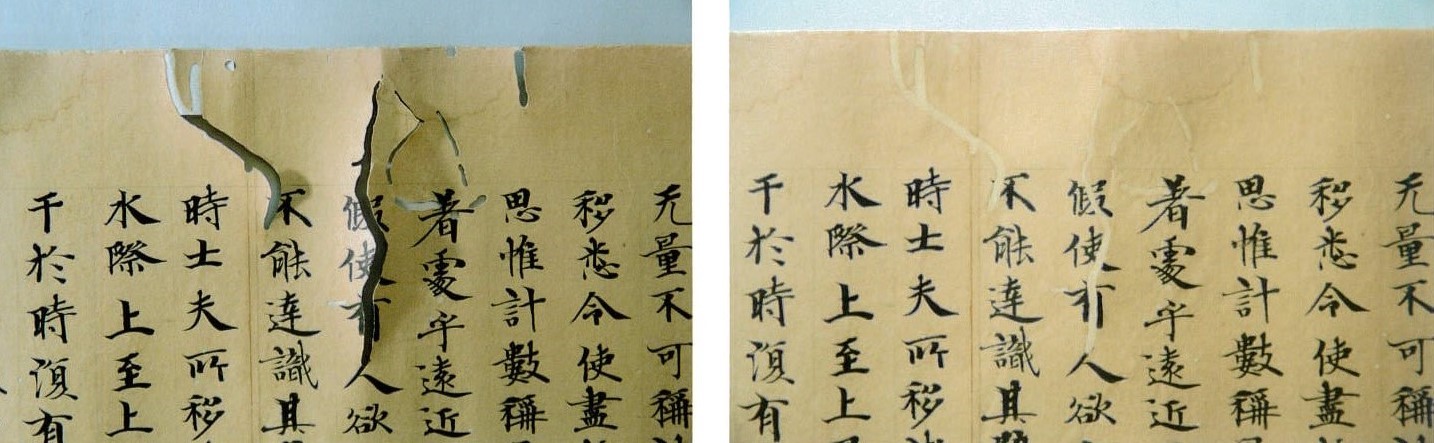 无量不可稱
移悉令使盡
思惟計數稱
著處乎遠近
假使有人欲
不能達識其
時士夫所移
水際上至上
千於時復有
无量不可稱
移悉令使盡
思惟計數稱
著處乎遠近
假使有人欲
不能達識其
時士夫所移
水際上至上
千於時復有